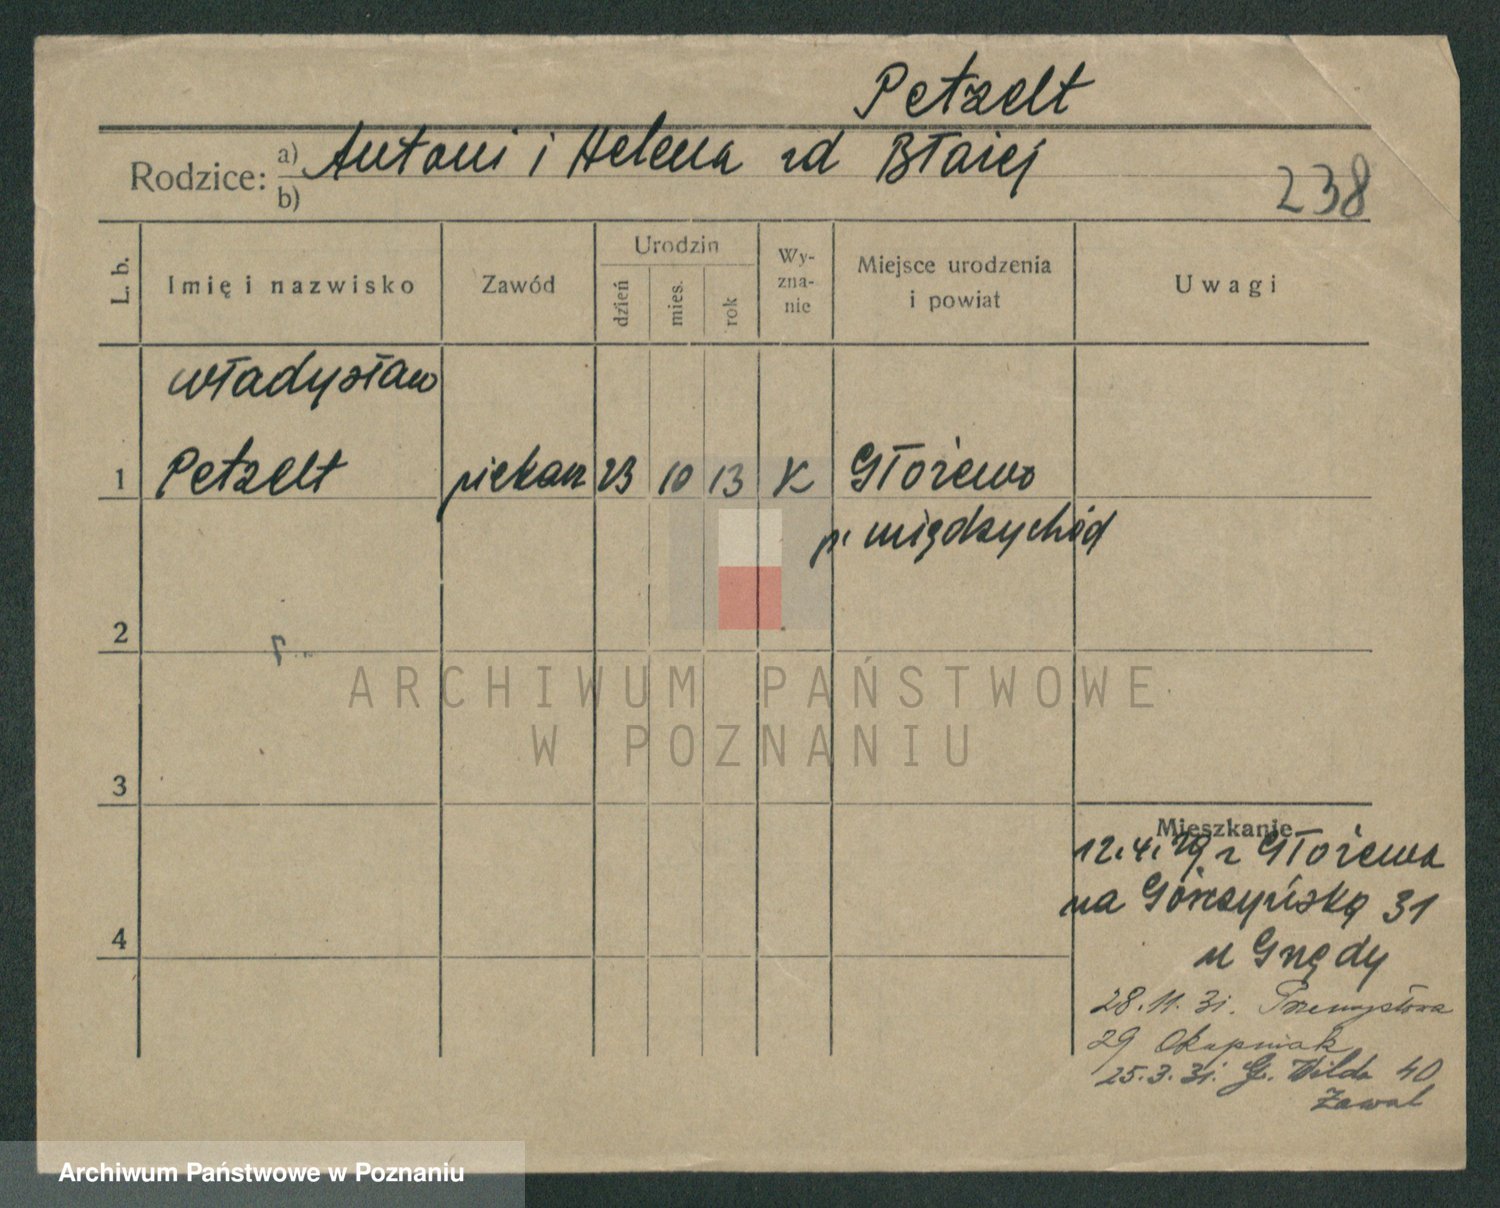 Petzelt
Rodzice: a) Antoni i Helena zd Błażej
b)
238
L. b.
Imię i nazwisko
Zawód
Urodzin
dzień
mies.
rok
Wy-
zna-
nie
Miejsce urodzenia
i powiat
Uwagi
Władysław
1 Petzelt piekarz 23 10 13 K Głożewo
p. międzychód
2
3
4
Mieszkanie
12.4.29 z Głożewa
na Górczyńską 31
u Grzędy
28.11.31. Przemysłowa
29 Okupniak
25.3.31. G. Wilda 40
Zawal
ARCHIWUM PAŃSTWOWE
W POZNANIU
Archiwum Państwowe w Poznaniu